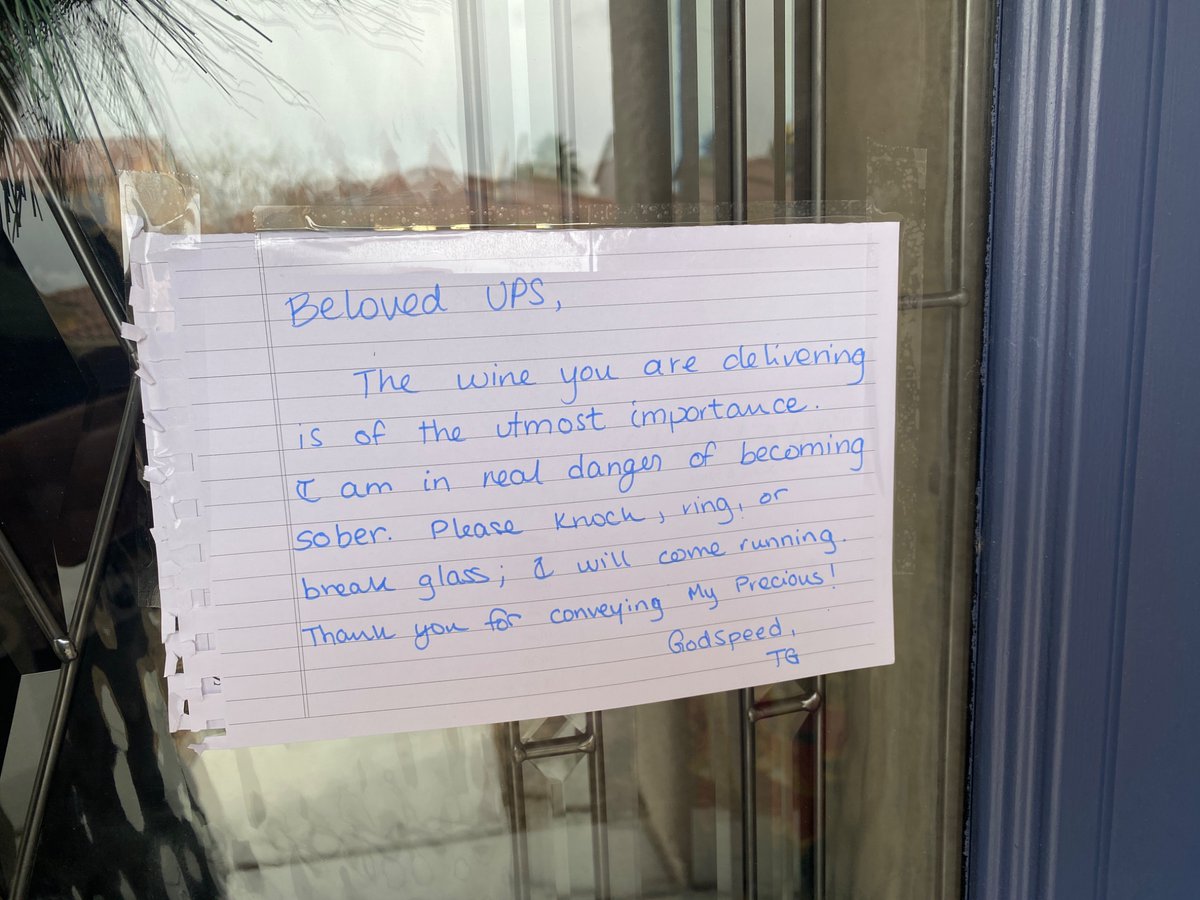 Beloved UPS,
The wine you are delivering
is of the utmost importance.
I am in real danger of becoming
sober. Please knock, ring, or
break glass; I will come running.
Thank you for conveying My Precious!
Godspeed,
TG